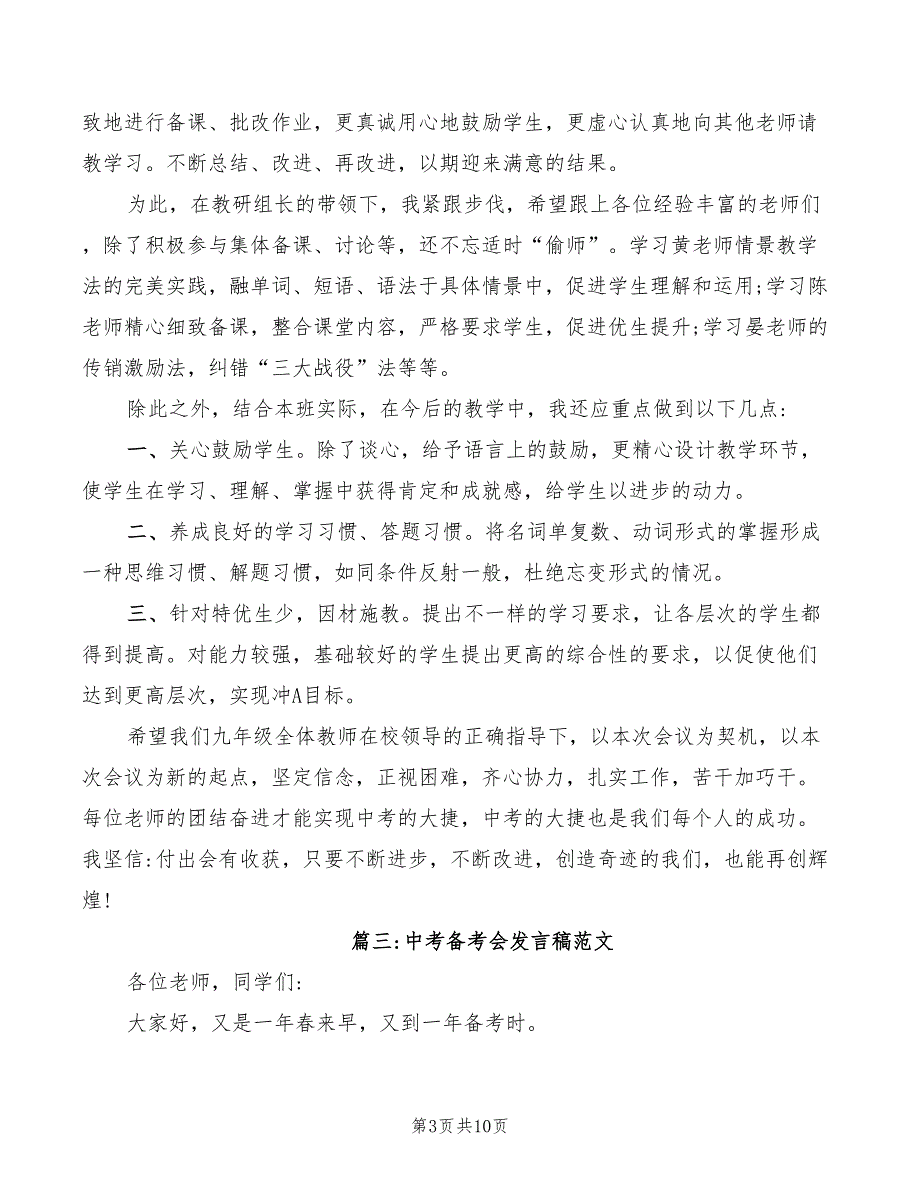 致地进行备课、批改作业，更真诚用心地鼓励学生，更虚心认真地向其他老师请
教学习。不断总结、改进、再改进，以期迎来满意的结果。
为此，在教研组长的带领下，我紧跟步伐，希望跟上各位经验丰富的老师们
，除了积极参与集体备课、讨论等，还不忘适时“偷师”。学习黄老师情景教学
法的完美实践，融单词、短语、语法于具体情景中，促进学生理解和运用;学习陈
老师精心细致备课，整合课堂内容，严格要求学生，促进优生提升;学习晏老师的
传销激励法，纠错“三大战役”法等等。
除此之外，结合本班实际，在今后的教学中，我还应重点做到以下几点:
一、关心鼓励学生。除了谈心，给予语言上的鼓励，更精心设计教学环节，
使学生在学习、理解、掌握中获得肯定和成就感，给学生以进步的动力。
二、养成良好的学习习惯、答题习惯。将名词单复数、动词形式的掌握形成
一种思维习惯、解题习惯，如同条件反射一般，杜绝忘变形式的情况。
三、针对特优生少，因材施教。提出不一样的学习要求，让各层次的学生都
得到提高。对能力较强，基础较好的学生提出更高的综合性的要求，以促使他们
达到更高层次，实现冲A目标。
希望我们九年级全体教师在校领导的正确指导下，以本次会议为契机，以本
次会议为新的起点，坚定信念，正视困难，齐心协力，扎实工作，苦干加巧干。
每位老师的团结奋进才能实现中考的大捷，中考的大捷也是我们每个人的成功。
我坚信:付出会有收获，只要不断进步，不断改进，创造奇迹的我们，也能再创辉
煌!
篇三:中考备考会发言稿范文
各位老师，同学们:
大家好，又是一年春来早，又到一年备考时。
第3页共10页